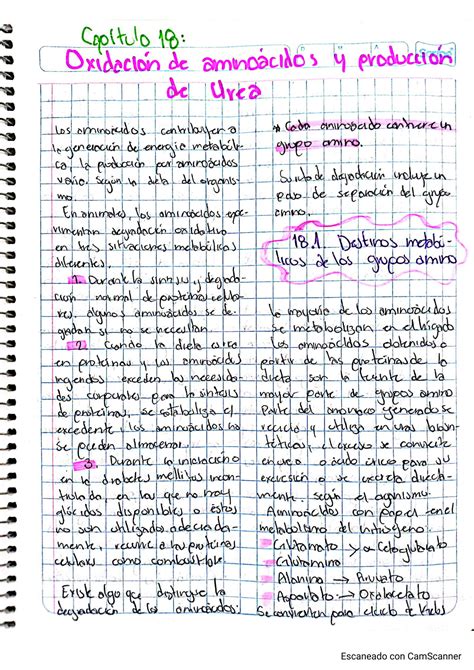 Capítulo 18:
Oxidación de aminoácidos y producción
de Urea
Los aminoácidos contribuyen a
la generación de energía metabóli-
ca, la producción por aminoácidos
varía según la dieta del organis-
mo.
En animales, los aminoácidos expe-
rimentan degradación oxidativa
en tres situaciones metabólicas
diferentes.
1. Durante la síntesis y degrada-
ción normal de proteínas celula-
res, algunos aminoácidos se de-
gradan si no se necesitan.
2. Cuando la dieta es rica
en proteínas y los aminoácidos
ingeridos exceden las necesida-
des corporales para la síntesis
de proteínas, se cataboliza el
excedente, los aminoácidos no
se pueden almacenar.
3. Durante la inanición o
en la diabetes mellitus incon-
trolada, en las que no hay
glúcidos disponibles o éstos
no son utilizados adecuada-
mente, recurre a las proteínas
celulares como combustible.
Existe algo que distingue la
degradación de los aminoácidos:
* Cada aminoácido contiene un
grupo amino.
Su ruta de degradación incluye un
paso de separación del grupo
amino.
18.1. Destinos metabó-
licos de los grupos amino
La mayoría de los aminoácidos
se metabolizan en el hígado
Los aminoácidos obtenidos a
partir de las proteínas de la
dieta son la fuente de la
mayor parte de grupos amino
Parte del amoniaco generado se
recicla y utiliza en vías biosin-
téticas, el exceso se convierte
en urea o ácido úrico para su
excreción o se excreta directa-
mente según el organismo.
Aminoácidos con papel en el
metabolismo del nitrógeno:
Glutamato
Glutamina
Alanina → Piruvato
Aspartato → Oxalacetato
Se convierten para ciclo de Krebs
Escaneado con CamScanner